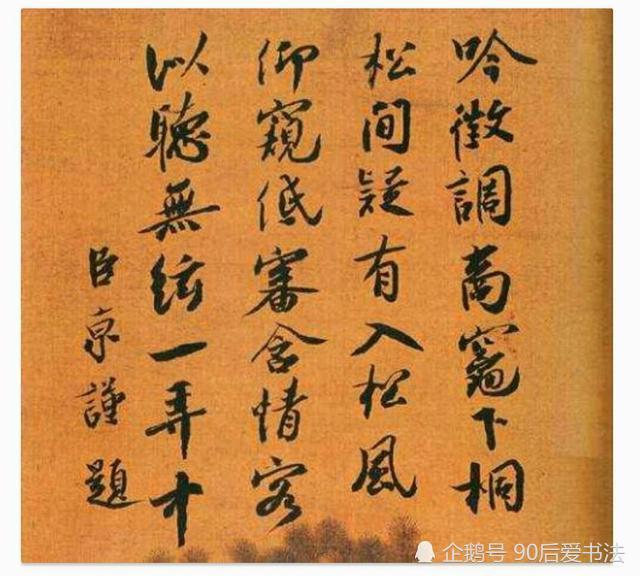 吟徵調商竈下桐
松間疑有入松風
仰窺低審含情客
以聽無絃一弄中
臣京謹題
企鹅号 90后爱书法